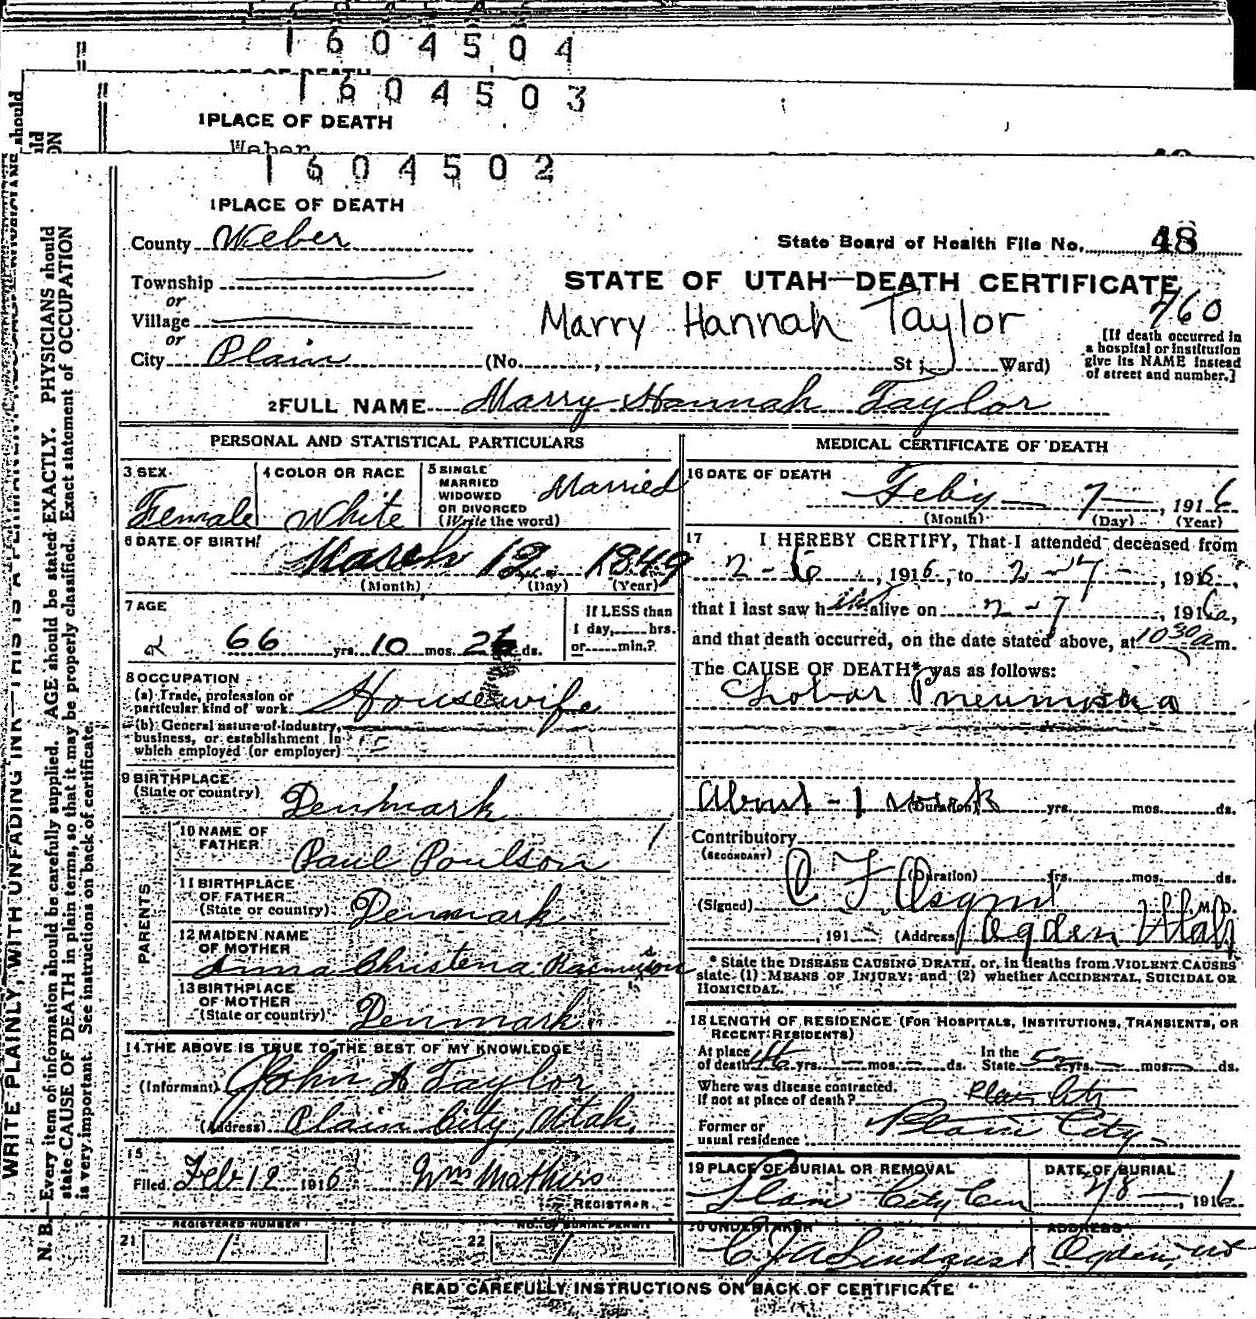 1604504
PLACE OF DEATH
1604503
1PLACE OF DEATH
Weber
1604502
1PLACE OF DEATH
County Weber
State Board of Health File No. 48
Township
or
Village
or
City Plain
STATE OF UTAH—DEATH CERTIFICATE
760
Marry Hannah Taylor
(No. , St ; Ward)
[If death occurred in
a hospital or institution
give its NAME instead
of street and number.]
2 FULL NAME Marry Hannah Taylor
PERSONAL AND STATISTICAL PARTICULARS
3 SEX Female
4 COLOR OR RACE White
5 SINGLE
MARRIED
WIDOWED
OR DIVORCED
(Write the word) Married
6 DATE OF BIRTH
March 12 1849
(Month) (Day) (Year)
7 AGE
66 yrs. 10 mos. ds.
If LESS than
1 day, hrs.
or min.?
8 OCCUPATION
(a) Trade, profession or
particular kind of work. Housewife
(b) General nature of industry,
business, or establishment in
which employed (or employer)
9 BIRTHPLACE
(State or country) Denmark
PARENTS
10 NAME OF
FATHER Paul Poulson
11 BIRTHPLACE
OF FATHER
(State or country) Denmark
12 MAIDEN NAME
OF MOTHER Anna Christena Rasmusson
13 BIRTHPLACE
OF MOTHER
(State or country) Denmark
14 THE ABOVE IS TRUE TO THE BEST OF MY KNOWLEDGE
(Informant) John A Taylor
(Address) Plain City, Utah.
15
Filed Feb 12 1916 Wm Mathers
REGISTRAR.
REGISTERED NUMBER
21 1
NO. OF BURIAL PERMIT
22 1
MEDICAL CERTIFICATE OF DEATH
16 DATE OF DEATH
Feby 7 , 1916
(Month) (Day) (Year)
17 I HEREBY CERTIFY, That I attended deceased from
2-6 , 1916, to 2-7- , 1916,
that I last saw h alive on 2-7 , 1916,
and that death occurred, on the date stated above, at 10 30 a m.
The CAUSE OF DEATH* was as follows:
Lobar Pneumonia
About 1 week (Duration) yrs. mos. ds.
Contributory
(SECONDARY)
(Duration) yrs. mos. ds.
(Signed) M.D.
, 191 (Address) Ogden Utah
* State the DISEASE CAUSING DEATH, or, in deaths from VIOLENT CAUSES
state (1) MEANS OF INJURY; and (2) whether ACCIDENTAL, SUICIDAL OR
HOMICIDAL.
18 LENGTH OF RESIDENCE (FOR HOSPITALS, INSTITUTIONS, TRANSIENTS, OR
RECENT RESIDENTS)
At place
of death yrs. mos. ds.
In the
State yrs. mos. ds.
Where was disease contracted,
If not at place of death? Plain City
Former or
usual residence Plain City
19 PLACE OF BURIAL OR REMOVAL
Plain City Cem
DATE OF BURIAL
2/8 , 1916
20 UNDERTAKER
C J A Lindquist
ADDRESS
Ogden, Ut
READ CAREFULLY INSTRUCTIONS ON BACK OF CERTIFICATE
WRITE PLAINLY, WITH UNFADING INK—THIS IS A PERMANENT
N. B.—Every item of information should be carefully supplied. AGE should be stated EXACTLY. PHYSICIANS should
state CAUSE OF DEATH in plain terms, so that it may be properly classified. Exact statement of OCCUPATION
is very important. See instructions on back of certificate.